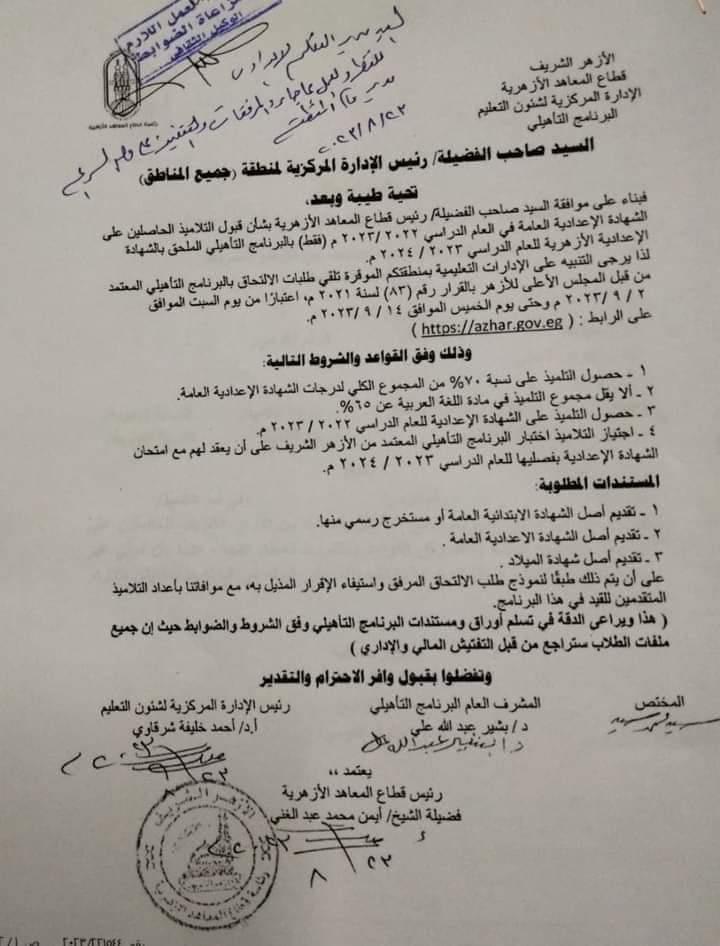 للعمل اللازم
ومراعاة الضوابط
الوكيل الثقافي
السيد مدير التعليم الإعدادي
للنظر والعمل بما جاء بالمرفقات والتنفيذ على وجه السرعة
مدير عام المنطقة
٢٠٢٣/٨/٢٣
رئاسة قطاع المعاهد الأزهرية
الأزهر الشريف
قطاع المعاهد الأزهرية
الإدارة المركزية لشئون التعليم
البرنامج التأهيلي
السيد صاحب الفضيلة/ رئيس الإدارة المركزية لمنطقة (جميع المناطق)
تحية طيبة وبعد،
فبناء على موافقة السيد صاحب الفضيلة/ رئيس قطاع المعاهد الأزهرية بشأن قبول التلاميذ الحاصلين على
الشهادة الإعدادية العامة في العام الدراسي ٢٠٢٢/ ٢٠٢٣ م (فقط) بالبرنامج التأهيلي الملحق بالشهادة
الإعدادية الأزهرية للعام الدراسي ٢٠٢٣ / ٢٠٢٤ م.
لذا يرجى التنبيه على الإدارات التعليمية بمنطقتكم الموقرة تلقي طلبات الالتحاق بالبرنامج التأهيلي المعتمد
من قبل المجلس الأعلى للأزهر بالقرار رقم (٨٣) لسنة ٢٠٢١ م، اعتبارًا من يوم السبت الموافق
٢ / ٩ / ٢٠٢٣ م وحتى يوم الخميس الموافق ١٤ / ٩ / ٢٠٢٣ م.
على الرابط : ( https://azhar.gov.eg )
وذلك وفق القواعد والشروط التالية:
١ - حصول التلميذ على نسبة ٧٠% من المجموع الكلي لدرجات الشهادة الإعدادية العامة.
٢ - ألا يقل مجموع التلميذ في مادة اللغة العربية عن ٦٥%.
٣ - حصول التلميذ على الشهادة الإعدادية للعام الدراسي ٢٠٢٢ / ٢٠٢٣ م.
٤ - اجتياز التلاميذ اختبار البرنامج التأهيلي المعتمد من الأزهر الشريف على أن يعقد لهم مع امتحان
الشهادة الإعدادية بفصليها للعام الدراسي ٢٠٢٣ / ٢٠٢٤ م.
المستندات المطلوبة:
١ - تقديم أصل الشهادة الابتدائية العامة أو مستخرج رسمي منها.
٢ - تقديم أصل الشهادة الاعدادية العامة .
٣ - تقديم أصل شهادة الميلاد .
على أن يتم ذلك طبقًا لنموذج طلب الالتحاق المرفق واستيفاء الإقرار المذيل به، مع موافاتنا بأعداد التلاميذ
المتقدمين للقيد في هذا البرنامج.
( هذا ويراعى الدقة في تسلم أوراق ومستندات البرنامج التأهيلي وفق الشروط والضوابط حيث إن جميع
ملفات الطلاب ستراجع من قبل التفتيش المالي والإداري )
وتفضلوا بقبول وافر الاحترام والتقدير
المختص
المشرف العام البرنامج التأهيلي
رئيس الإدارة المركزية لشئون التعليم
د/ بشير عبد الله علي
أ.د/ أحمد خليفة شرقاوي
د/ بشير عبدالله علي
يعتمد ،،
رئيس قطاع المعاهد الأزهرية
فضيلة الشيخ/ أيمن محمد عبد الغني
الأزهر الشريف
رئاسة قطاع المعاهد الأزهرية